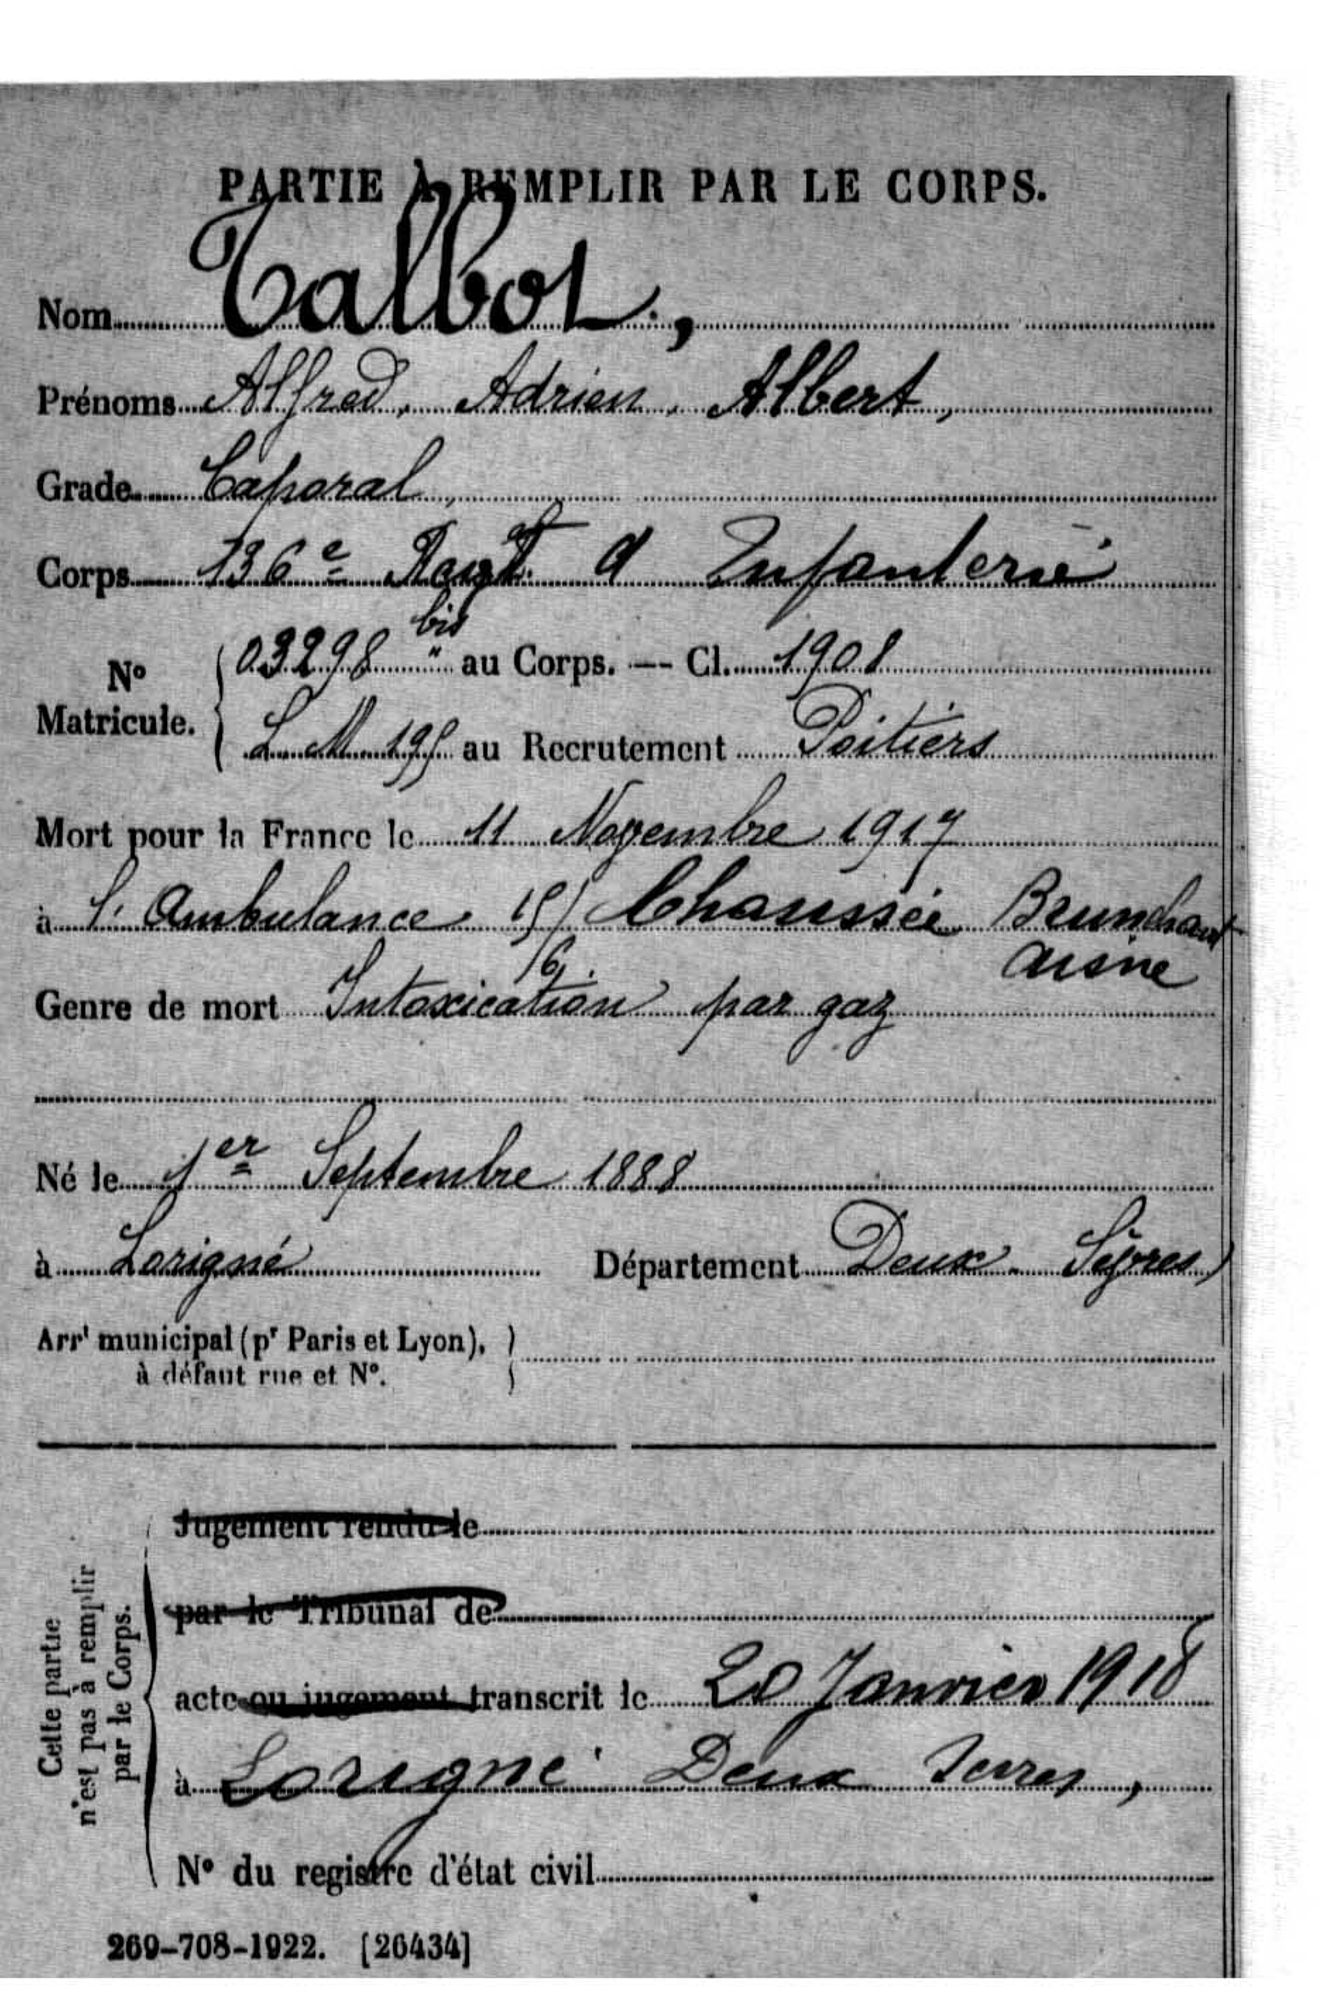 PARTIE À REMPLIR PAR LE CORPS.
Nom Talbot,
Prénoms Alfred, Adrien, Albert,
Grade Caporal,
Corps 136e Regt d Infanterie
bis
03298 " au Corps. — Cl. 1908
No
Matricule.
L M 195 au Recrutement Poitiers
Mort pour la France le 11 Novembre 1917
à l'Ambulance 15/ Chaussée Brunehaut
16. Aisne
Genre de mort Intoxication par gaz
Né le 1er Septembre 1888
à Lorigné Département Deux-Sèvres
Arrt municipal (pr Paris et Lyon),
à défaut rue et No.
Jugement rendu le
par le Tribunal de
acte ou jugement transcrit le 20 Janvier 1918
à Lorigné Deux Sevres,
No du registre d'état civil
Cette partie
n'est pas à remplir
par le Corps.
269-708-1922. [26434]